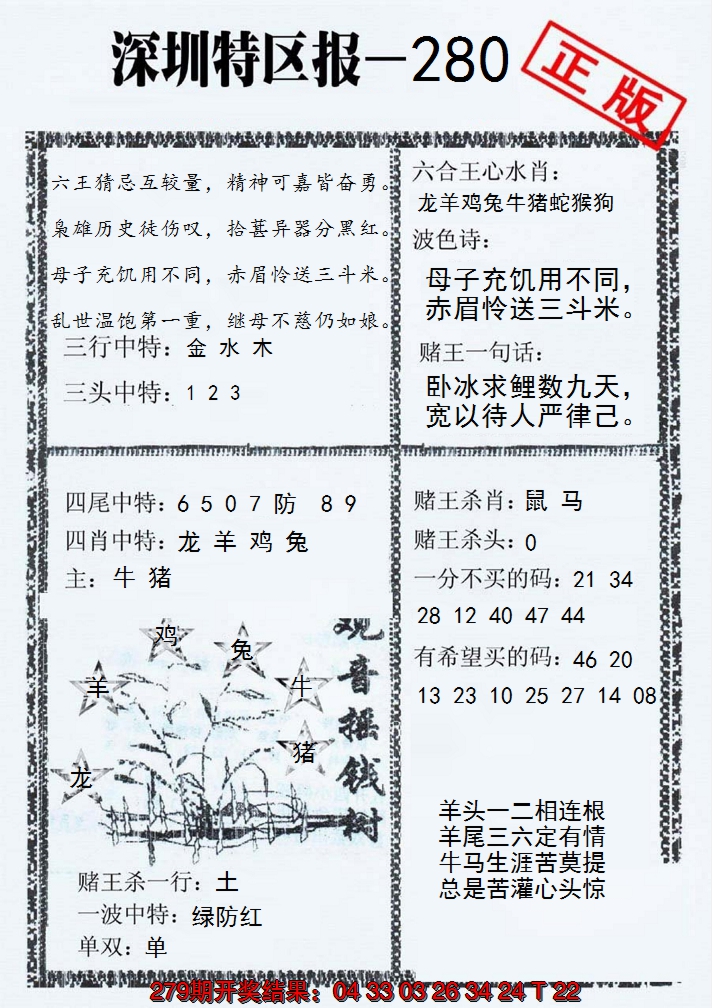 深圳特区报—280
正版
六王猜忌互较量，精神可嘉皆奋勇。
枭雄历史徒伤叹，拾葚异器分黑红。
母子充饥用不同，赤眉怜送三斗米。
乱世温饱第一重，继母不慈仍如娘。
三行中特：金 水 木
三头中特：1 2 3
六合王心水肖：
龙羊鸡兔牛猪蛇猴狗
波色诗：
母子充饥用不同，
赤眉怜送三斗米。
赌王一句话：
卧冰求鲤数九天，
宽以待人严律己。
四尾中特：6 5 0 7 防 8 9
四肖中特：龙 羊 鸡 兔
主：牛 猪
鸡
兔
羊
牛
猪
龙
观音摇钱树
赌王杀一行：土
一波中特：绿防红
单双：单
赌王杀肖：鼠 马
赌王杀头：0
一分不买的码：21 34
28 12 40 47 44
有希望买的码：46 20
13 23 10 25 27 14 08
羊头一二相连根
羊尾三六定有情
牛马生涯苦莫提
总是苦灌心头惊
279期开奖结果：04 33 03 26 34 24 T 22